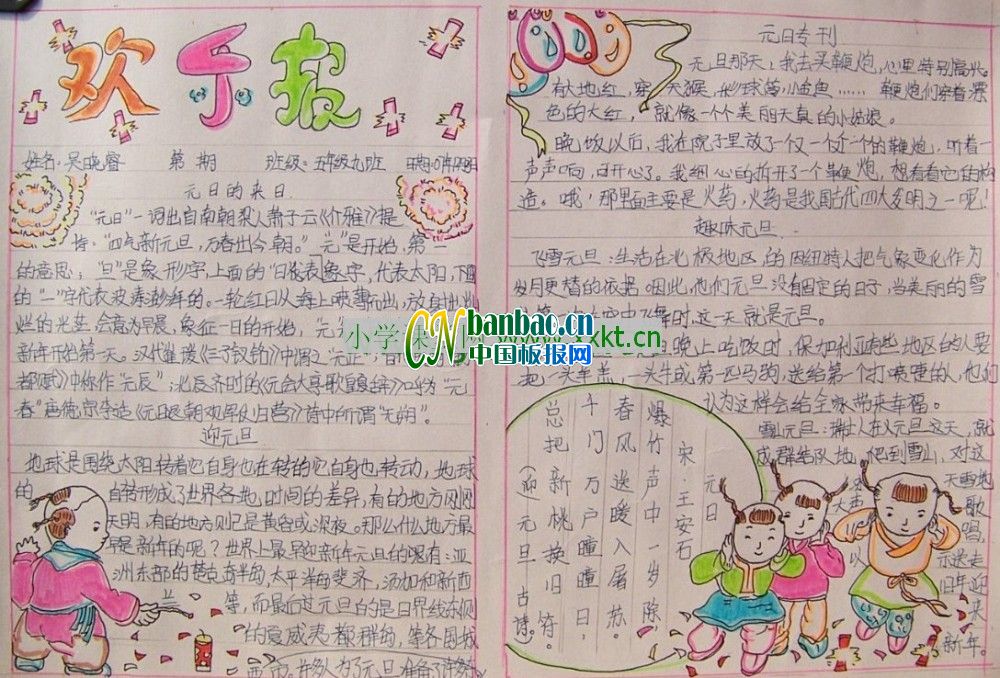 欢乐报
姓名:吴晓睿 第 期 班级:五年级九班
元旦的来日
"元日"一词出自南朝梁人萧子云《介雅》
"四气新元旦,万春出今朝。""元"是开始,第一
的意思;"旦"是象形字,上面的"日"代表太阳,下面
的"一"字代表波涛澎湃的。一轮红日从海上喷薄而出,放射出灿
烂的光芒,会意为早晨,象征一日的开始,
新年开始第一天。汉代崔瑗《三子钗铭》中谓之"元正"
中称作"元辰";北辰齐时的《元会大享歌皇夏辞》呼为"元
春"唐德宗李适《元日退朝观军仗归营》诗中所谓"元朔"。
迎元旦
地球是围绕太阳转着它自身也在转的它自身也转动,地球
的 自转形成了世界各地,时间的差异,有的地方刚刚
天明,有的地方则已是黄昏或深夜。那么什么地方最
早是新年的呢?世界上最早迎新年元旦的嘿有:亚
洲东部的楚克奇半岛,太平洋的斐济,汤加和新西
等,而最后过元旦的是日界线东侧
的夏威夷都群岛,等各国城
元日专刊
元旦那天,我去买鞭炮,心里特别高兴。
有大地红,穿天猴,小金鱼……鞭炮们穿着漂
色的大红,就像一个个美丽天真的小姑娘。
晚饭以后,我在院子里放了一仅一仅一个的鞭炮,听着一
声声响,可开心了。我细心的拆开了个鞭炮,想看看它的构
造。哦,那里面主要是火药,火药是我国古代四大发明之一呢!
趣味元旦
飞雪元旦:生活在北极地区的因纽特人把气象变化作为
岁月更替的依据因此,他们元旦没有固定的日子,当美丽的雪
空中飞舞时,这一天就是元旦。
晚上吃饭时,保加利亚有些地区的人要
一头羊羔一头牛或第一匹马驹,送给第一个打喷嚏的人,他们
认为这样会给全家带来幸福。
雪山元旦:瑞士人在元旦这天,就
成群结队地,爬到雪山,对这
天雪地
大声歌
唱,
以示送走
旧年迎
来
新年。
元日
宋·王安石
爆竹声中一岁除
春风送暖入屠苏。
千门万户曈曈日,
总把新桃换旧符。
(迎元旦古诗)
小学课 网 www. xkt.cn
CN banbao.cn
中国板报网